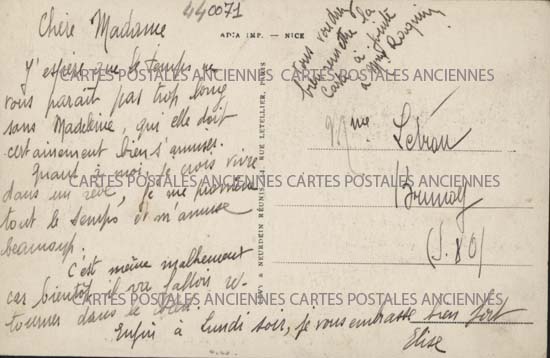 440071
ADIA IMP. - NICE
Chère Madame
J'espère que le temps ne
vous paraît pas trop long
sans Madeleine, qui elle doit
certainement bien s'amuser.
Quant à moi, je crois vivre
dans un rêve, je me promène
tout le temps, et m'amuse
beaucoup.
C'est même malheureux
car bientôt il va falloir re-
tourner dans le
Enfin à lundi soir, je vous embrasse bien fort
Elise
Vous voudrez
bien remettre la
carte à
à Mme
LEVY & NEURDEIN RÉUNIS, 44 RUE LETELLIER, PARIS
Mme Lebrau
Brunoy
(S. &O)
CARTES POSTALES ANCIENNES CARTES POSTALES ANCIENNES
CARTES POSTALES ANCIENNES CARTES POSTALES ANCIENNES
CARTES POSTALES ANCIENNES CARTES POSTALES ANCIENNES